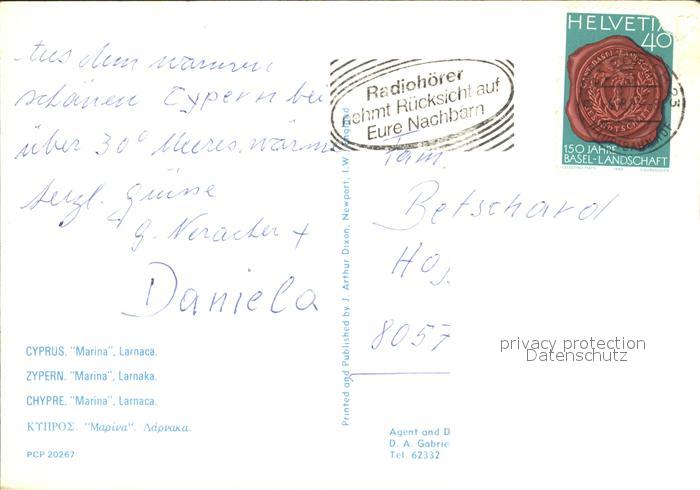 Aus dem warmen
schönen Zypern bei
über 30° Meereswärme
herzl. Grüsse
Daniela
Radiohörer
nehmt Rücksicht auf
Eure Nachbarn
HELVETIA
40
150 JAHRE
BASEL-LANDSCHAFT
Fam.
Betschard
8057
privacy protection
Datenschutz
Printed and Published by J. Arthur Dixon, Newport, I.W. England
CYPRUS. "Marina", Larnaca.
ZYPERN. "Marina", Larnaka.
CHYPRE. "Marina", Larnaca.
ΚΥΠΡΟΣ. "Μαρίνα". Λάρνακα.
PCP 20267
Agent and D
D. A. Gabrie
Tel. 62332